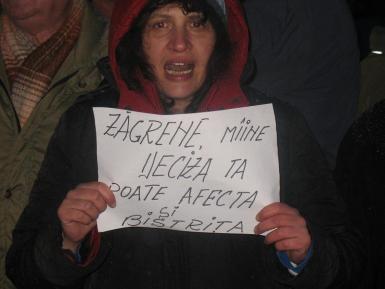 ZĂGRENE, MÎINE
DECIZIA TA
POATE AFECTA
ȘI
BISTRIȚA